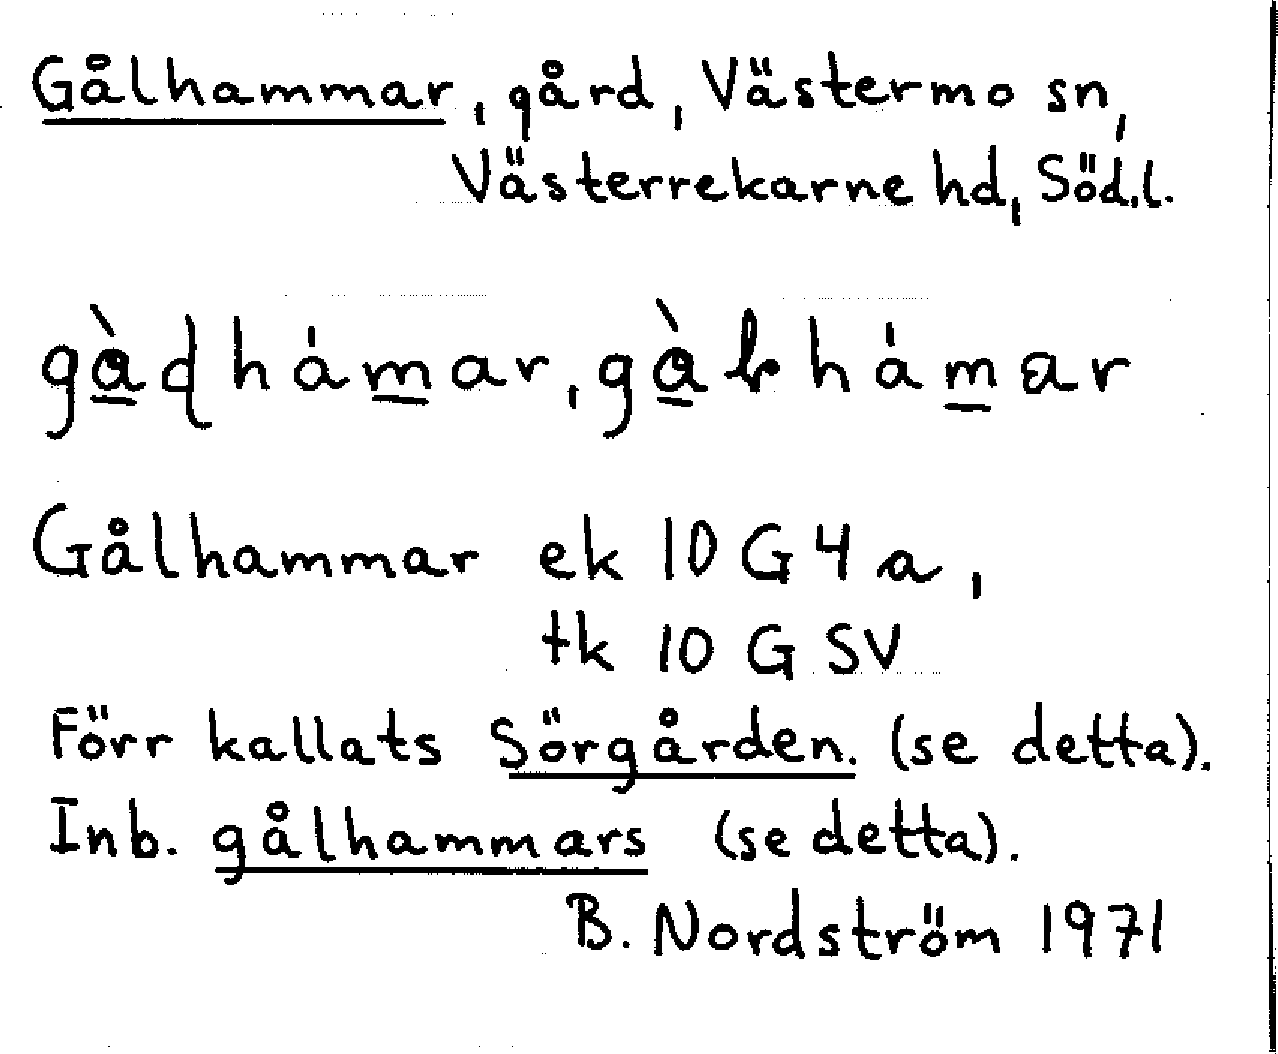 Gålhammar, gård, Västermo sn,
Västerrekarne hd, Söd.l.
Gålhammar ek 10 G 4 a,
tk 10 G SV
Förr kallats Sörgården. (se detta).
Inb. gålhammars (se detta).
B. Nordström 1971